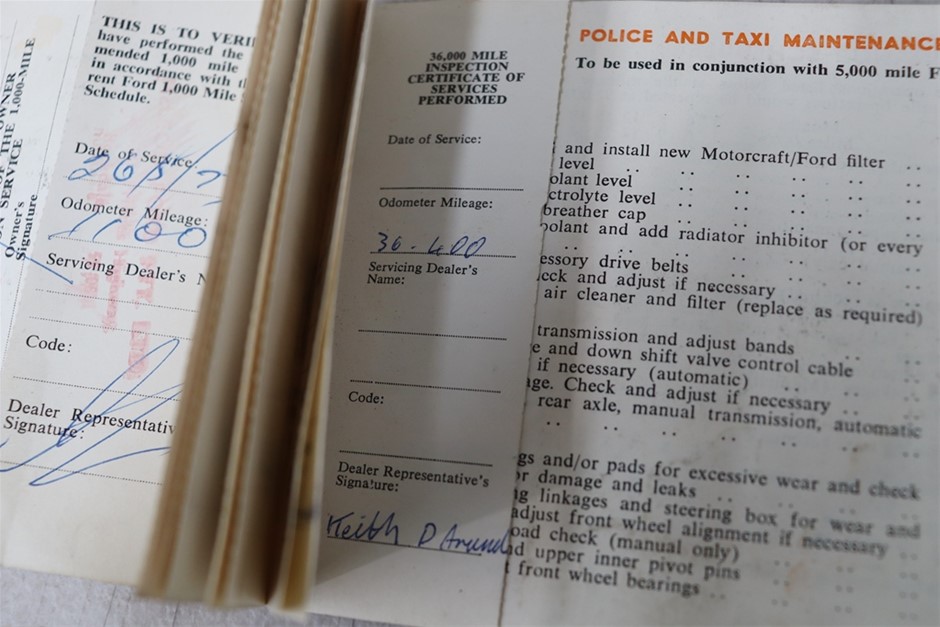 OF THE OWNER
ON SERVICE 1,000-MILE
Owner's
Signature
THIS IS TO VERI
have performed the
mended 1,000 mile
in accordance with t
rent Ford 1,000 Mile
Schedule.
Date of Service
26/8/7
Odometer Mileage:
1100
Servicing Dealer's N
Code:
Dealer Representativ
Signature:
36,000 MILE
INSPECTION
CERTIFICATE OF
SERVICES
PERFORMED
Date of Service:
Odometer Mileage:
36-400
Servicing Dealer's
Name:
Code:
Dealer Representative's
Signature:
Keith P
POLICE AND TAXI MAINTENANC
To be used in conjunction with 5,000 mile F
and install new Motorcraft/Ford filter .. ..
level .. .. .. .. ..
olant level .. .. .. .. ..
ctrolyte level .. .. .. .. ..
breather cap .. .. .. .. ..
oolant and add radiator inhibitor (or every
.. .. .. .. .. ..
essory drive belts .. .. .. ..
eck and adjust if necessary .. .. .. ..
air cleaner and filter (replace as required)
transmission and adjust bands .. ..
e and down shift valve control cable
if necessary (automatic) .. .. ..
ge. Check and adjust if necessary .. ..
rear axle, manual transmission, automatic
.. .. .. .. .. ..
gs and/or pads for excessive wear and check
or damage and leaks .. .. .. ..
g linkages and steering box for wear and
adjust front wheel alignment if necessary
oad check (manual only) .. .. ..
d upper inner pivot pins .. .. ..
t front wheel bearings .. .. .. ..